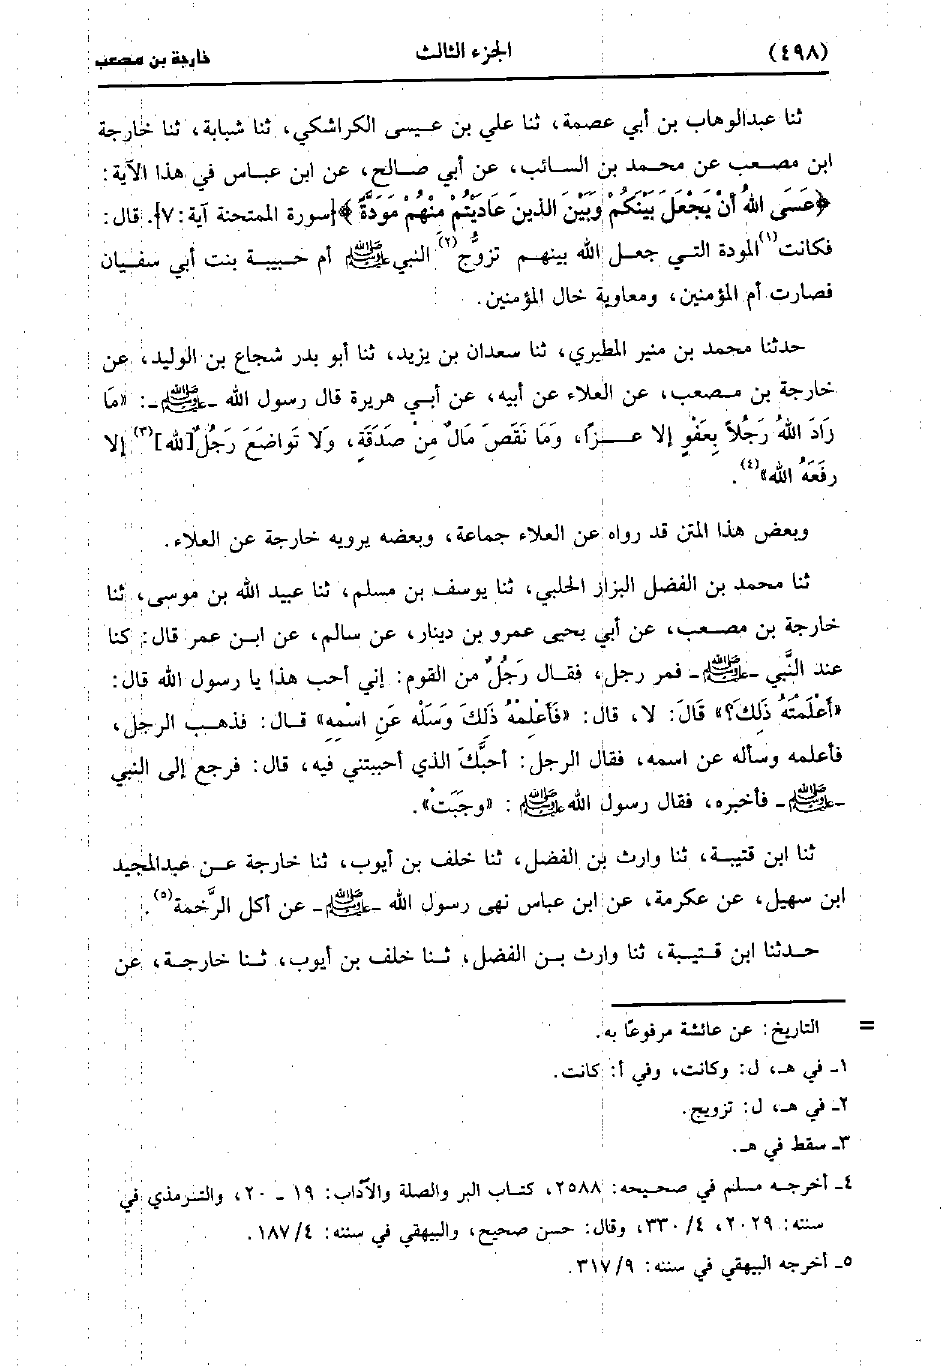 (٤٩٨) الجزء الثالث خارجة بن مصعب
ثنا عبدالوهاب بن أبي عصمة، ثنا علي بن عيسى الكراشكي، ثنا شبابة، ثنا خارجة
ابن مصعب عن محمد بن السائب، عن أبي صالح، عن ابن عباس في هذا الآية:
﴿عَسَى اللهُ أَنْ يَجْعَلَ بَيْنَكُمْ وَبَيْنَ الذينَ عَادَيْتُمْ مِنْهُمْ مَوَدَّةً﴾[سورة الممتحنة آية:٧]. قال:
فكانت(١) المودة التي جعل الله بينهم تزوجُ(٢) النبي ﷺ أم حبيبة بنت أبي سفيان
فصارت أم المؤمنين، ومعاوية خال المؤمنين.
حدثنا محمد بن منير المطيري، ثنا سعدان بن يزيد، ثنا أبو بدر شجاع بن الوليد، عن
خارجة بن مصعب، عن العلاء عن أبيه، عن أبي هريرة قال رسول الله ـ ﷺ ـ: «مَا
زَادَ اللهُ رَجُلاً بِعَفْوٍ إلا عِزًا، وَمَا نَقَصَ مَالٌ مِنْ صَدَقَةٍ، وَلا تَوَاضَعَ رَجُلٌ [لله](٣) إلا
رفَعَهُ الله»(٤).
وبعض هذا المتن قد رواه عن العلاء جماعة، وبعضه يرويه خارجة عن العلاء.
ثنا محمد بن الفضل البزاز الحلبي، ثنا يوسف بن مسلم، ثنا عبيد الله بن موسى، ثنا
خارجة بن مصعب، عن أبي يحيى عمرو بن دينار، عن سالم، عن ابن عمر قال: كنا
عند النَّبي ـ ﷺ ـ فمر رجل، فقال رَجُلٌ من القوم: إني أحب هذا يا رسول الله قال:
«أَعْلَمْتَهُ ذَلِكَ؟» قَالَ: لا، قال: «فَأَعْلِمْهُ ذَلِكَ وَسَلْه عَنِ اسْمِهِ» قال: فذهب الرجل،
فأعلمه وسأله عن اسمه، فقال الرجل: أحبَّكَ الذي أحببتني فيه، قال: فرجع إلى النبي
ـ ﷺ ـ فأخبره، فقال رسول الله ﷺ : «وجَبَتْ».
ثنا ابن قتيبة، ثنا وارث بن الفضل، ثنا خلف بن أيوب، ثنا خارجة عن عبدالمجيد
ابن سهيل، عن عكرمة، عن ابن عباس نهى رسول الله ـ ﷺ ـ عن أكل الرَّخمة(٥).
حدثنا ابن قتيبة، ثنا وارث بن الفضل، ثنا خلف بن أيوب، ثنا خارجة، عن
= التاريخ: عن عائشة مرفوعًا به.
١ـ في هـ، ل: وكانت، وفي أ: كانت.
٢ـ في هـ، ل: تزويج.
٣ـ سقط في هـ.
٤ـ أخرجه مسلم في صحيحه: ٢٥٨٨، كتاب البر والصلة والآداب: ١٩ ـ ٢٠، والترمذي في
سننه: ٢٠٢٩، ٤/ ٣٣٠، وقال: حسن صحيح، والبيهقي في سننه: ١٨٧/٤.
٥ـ أخرجه البيهقي في سننه: ٣١٧/٩.